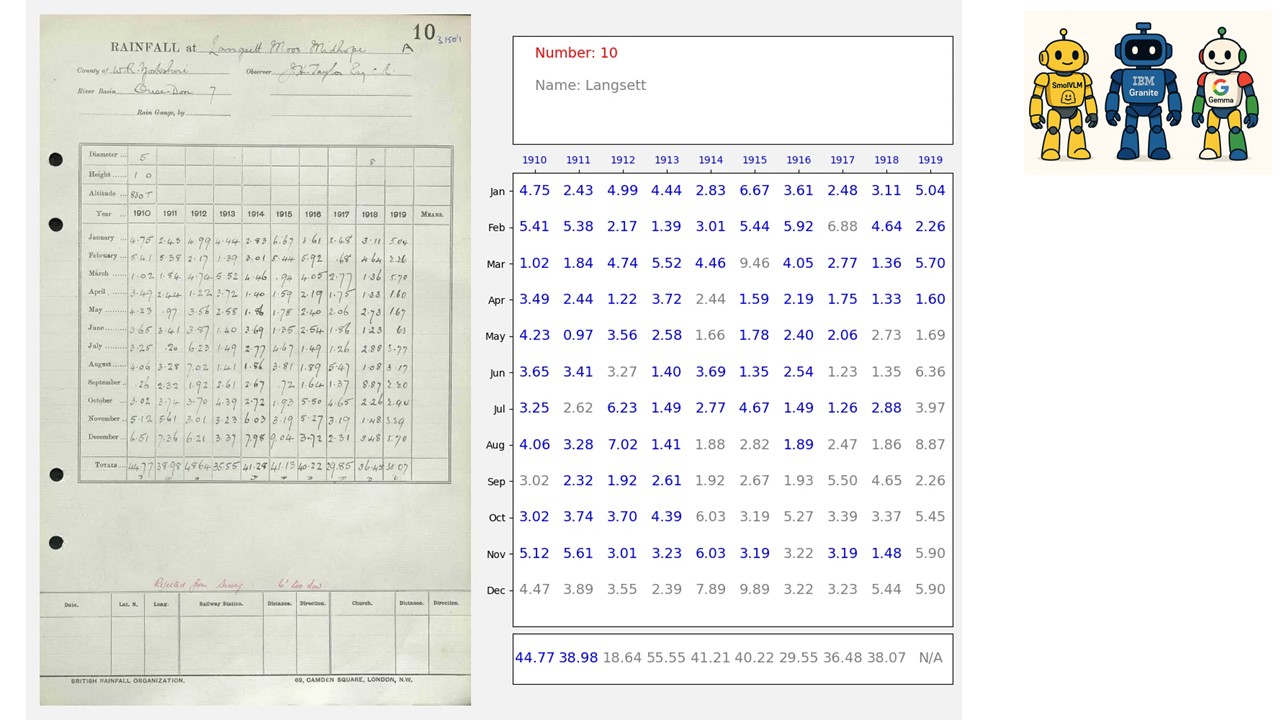 10
RAINFALL at Langsett Moor Midhope A
County of W.R. Yorkshire Observer
River Basin Ouse-Don 7
Rain Gauge, by
Diameter ... 5 8
Height ...... 1 0
Altitude ...
Year ... 1910 1911 1912 1913 1914 1915 1916 1917 1918 1919 MEANS.
January ... 4.75 2.43 4.99 4.44 2.83 6.67 3.61 2.48 3.11 5.04
February ... 5.41 5.38 2.17 1.39 3.01 5.44 5.92 .68 4.64 2.26
March ...... 1.02 1.84 4.74 5.52 4.46 .94 4.05 2.77 1.36 5.70
April ...... 3.49 2.44 1.22 3.72 1.40 1.59 2.19 1.75 1.33 1.60
May ...... 4.23 .97 3.56 2.58 1.78 2.40 2.06 2.73 1.67
June ...... 3.65 3.41 3.87 1.40 3.69 1.35 2.54 1.86 1.23
July ...... 3.25 .20 6.23 1.49 2.77 4.67 1.49 1.26 2.88 3.77
August ...... 4.06 3.28 7.02 1.41 1.86 3.81 1.89 5.47 1.08 3.17
September .. .26 2.32 1.92 2.61 2.67 .72 1.64 1.37 8.87 2.20
October ... 3.02 3.74 3.70 4.39 2.72 1.93 5.50 4.65 2.26 2.94
November ... 5.12 5.61 3.01 3.23 6.03 3.19 5.27 3.19 1.48
December ... 6.51 7.36 6.21 3.37 7.98 9.04 3.72 2.31 5.70
TOTALS ... 44.77 38.98 48.64 35.55 41.28 41.13 40.22 29.85 38.07
Rejected from
Date. Lat. N. Long. Railway Station. Distance. Direction. Church. Distance. Direction.
BRITISH RAINFALL ORGANIZATION. 62, CAMDEN SQUARE, LONDON, N.W.
Number: 10
Name: Langsett
1910 1911 1912 1913 1914 1915 1916 1917 1918 1919
Jan 4.75 2.43 4.99 4.44 2.83 6.67 3.61 2.48 3.11 5.04
Feb 5.41 5.38 2.17 1.39 3.01 5.44 5.92 6.88 4.64 2.26
Mar 1.02 1.84 4.74 5.52 4.46 9.46 4.05 2.77 1.36 5.70
Apr 3.49 2.44 1.22 3.72 2.44 1.59 2.19 1.75 1.33 1.60
May 4.23 0.97 3.56 2.58 1.66 1.78 2.40 2.06 2.73 1.69
Jun 3.65 3.41 3.27 1.40 3.69 1.35 2.54 1.23 1.35 6.36
Jul 3.25 2.62 6.23 1.49 2.77 4.67 1.49 1.26 2.88 3.97
Aug 4.06 3.28 7.02 1.41 1.88 2.82 1.89 2.47 1.86 8.87
Sep 3.02 2.32 1.92 2.61 1.92 2.67 1.93 5.50 4.65 2.26
Oct 3.02 3.74 3.70 4.39 6.03 3.19 5.27 3.39 3.37 5.45
Nov 5.12 5.61 3.01 3.23 6.03 3.19 3.22 3.19 1.48 5.90
Dec 4.47 3.89 3.55 2.39 7.89 9.89 3.22 3.23 5.44 5.90
44.77 38.98 18.64 55.55 41.21 40.22 29.55 36.48 38.07 N/A
SmolVLM
IBM
Granite
G
Gemma